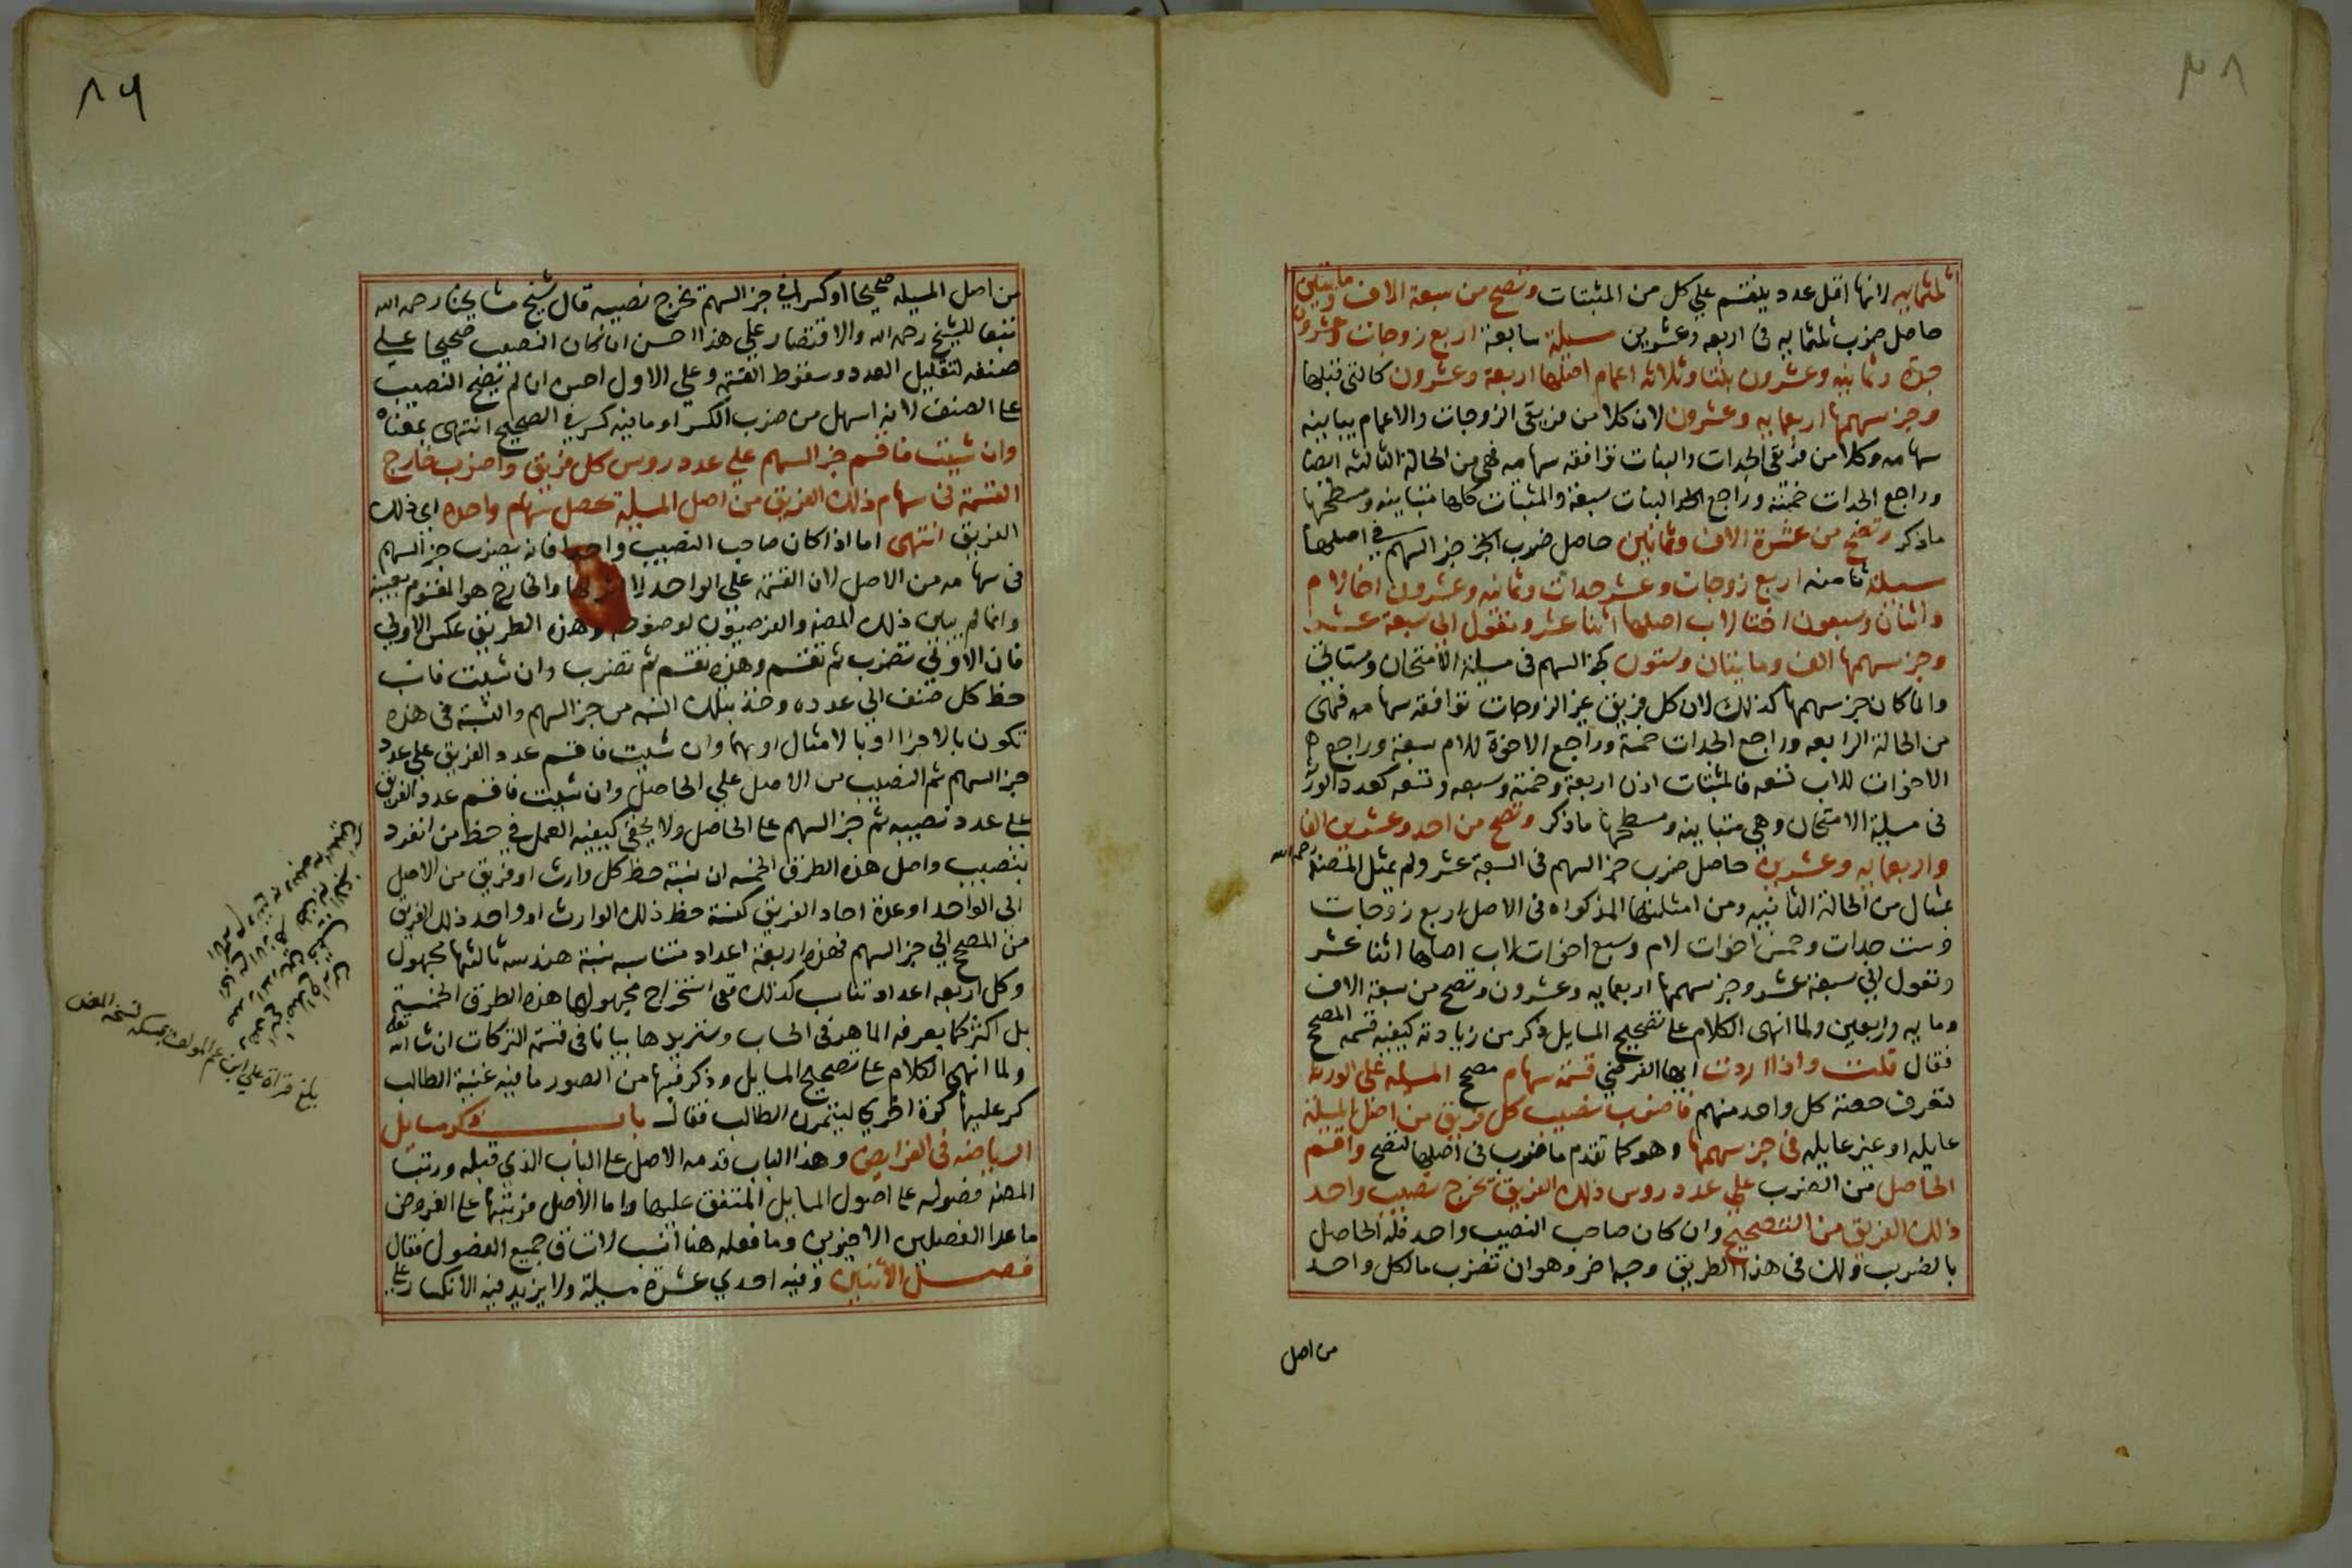 ثلثمايه لانها اقل عدد ينقسم علي كل من المثبتات وتصح من سبعة الاف ومايتين وعشرون
حاصل ضرب ثلثمايه في اربعه وعشرين مسيلة سابعة اربع زوجات
جدة وثمانيه وعشرون بنتا وثلاثه اعمام اصلها اربعة وعشرون كالتي قبلها
وجز سهمها اربعمايه وعشرون لان كلا من فريقي الزوجات والاعمام يباينه
سهامه وكلا من فريقي الجدات والبنات توافقه سهامه فهي من الحالة الثالثه ايضا
وراجع الجدات خمسة وراجع البنات سبعة والمثبتات كلها متباينه ومسطحها
ماذكر وتصح من عشرة الاف وثمانين حاصل ضرب جز السهم في اصلها
مسيلة ثامنه اربع زوجات وعشر جدات وثمانيه وعشرون اخا لام
واثنان وسبعون اختا لاب اصلها اثنا عشر وتعول الي سبعة عشر
وجز سهمها الف ومايتان وستون كجز السهم في مسيلة الامتحان وستاتي
وانما كان جز سهمها كذلك لان كل فريق غير الزوجات توافقه سهامه فهي
من الحالة الرابعه وراجع الجدات خمسة وراجع الاخوة للام سبعة وراجع
الاخوات للاب تسعه فالمثبتات اذن اربعة وخمسة وسبعه وتسعه كعدد الورثة
في مسيلة الامتحان وهي متباينه ومسطحها ماذكر وتصح من احد وعشرين الفا
واربعمايه وعشرين حاصل ضرب جز السهم في السبعة عشر ولم يمثل المصنف رحمه الله
بمثال من الحالة الثانيه ومن امثلتها المذكوره في الاصل اربع زوجات
وست جدات وخمس اخوات لام وسبع اخوات لاب اصلها اثنا عشر
وتعول الي سبعة عشر وجز سهمها اربعمايه وعشرون وتصح من سبعة الاف
ومايه واربعين ولما انهى الكلام على تصحيح المسايل ذكر من زيادته كيفية قسمة المصحح
فقال قلت واذا اردت ايها الفرضي قسمة سهام مصحح المسيلة على الورثة
لتعرف حصة كل واحد منهم فاضرب نصيب كل فريق من اصل المسيلة
عايله او غير عايله في جز سهمها وهو كما تقدم ماضرب في اصلها لتصح واقسم
الحاصل من الضرب علي عدد روس ذلك الفريق تخرج نصيب واحد
ذلك الفريق من التصحيح وان كان صاحب النصيب واحد فله الحاصل
بالضرب ولك في هذا الطريق وجه اخر وهو ان تضرب مالكل واحد
من اصل
٨٩
من اصل المسيله صحيحا او كسرا في جز السهم تخرج نصيبه قال شيخ مشايخنا رحمه الله
تبعا للشيخ رحمه الله والاقتصار علي هذا احسن ان كان النصيب صحيحا علي
صنفه لتقليل العدد وسقوط القسمة وعلي الاول احسن ان لم يصح النصيب
على الصنف لانه اسهل من ضرب الكسر او ما فيه كسر في الصحيح انتهى بمعناه
وان شيت فاقسم جز السهم علي عدد روس كل فريق واضرب خارج
القسمة في سهام ذلك الفريق من اصل المسيلة تحصل سهام واحده اي ذلك
الفريق انتهى اما اذا كان صاحب النصيب واحدا فانه يضرب جز السهم
في سهامه من الاصل لان القسمة على الواحد لا اثر لها والخارج هو المقسوم بعينه
وانما لم يبين ذلك المصنف والفرضيون لوضوحه وهذه الطريق عكس الاولي
فان الاولي تضرب ثم تقسم وهذه تقسم ثم تضرب وان شيت فانسب
حظ كل صنف الي عدده وخذ بتلك النسبه من جز السهم والنسبة في هذه
تكون بالاجزا او بالامثال او بهما وان شيت فاقسم عدد الفريق علي عدد
جز السهم ثم النصيب من الاصل علي الحاصل وان شيت فاقسم عدد الفريق
على عدد نصيبه ثم جز السهم على الحاصل ولا يخفى كيفية العمل في حظ من انفرد
بنصيب واصل هذه الطرق الخمسه ان نسبة حظ كل وارث او فريق من الاصل
الى الواحد او عدة احاد الفريق كنسبة حظ ذلك الوارث او واحد ذلك الفريق
من المصحح الي جز السهم فهذه اربعة اعداد متناسبه نسبة هندسه ثالثها مجهول
وكل اربعه اعداد تناسب كذلك ففي استخراج مجهولها هذه الطرق الخمسة
بل اكثر كما يعرفه الماهر في الحساب وسنزيدها بيانا في قسمة التركات ان شا الله تعالى
ولما انهى الكلام على تصحيح المسايل وذكر فيها من الصور ما فيه غنية الطالب
كر عليها كرة اخري ليتمرن الطالب فقال باب ذكر مسايل
الرياضه في الفرايض وهذا الباب قدمه الاصل على الباب الذي قبله ورتب
المصنف فصوله على اصول المسايل المتفق عليها واما الاصل فرتبها على الفروض
ماعدا الفصلين الاخيرين وما فعله هنا انسب لاتساق جميع الفصول فقال
فصل الاثنين وفيه احدي عشرة مسيلة ولا يزيد فيه الانكسار على
بلغ قراة علي ابن عم المولف بمسكه نسخة المصنف